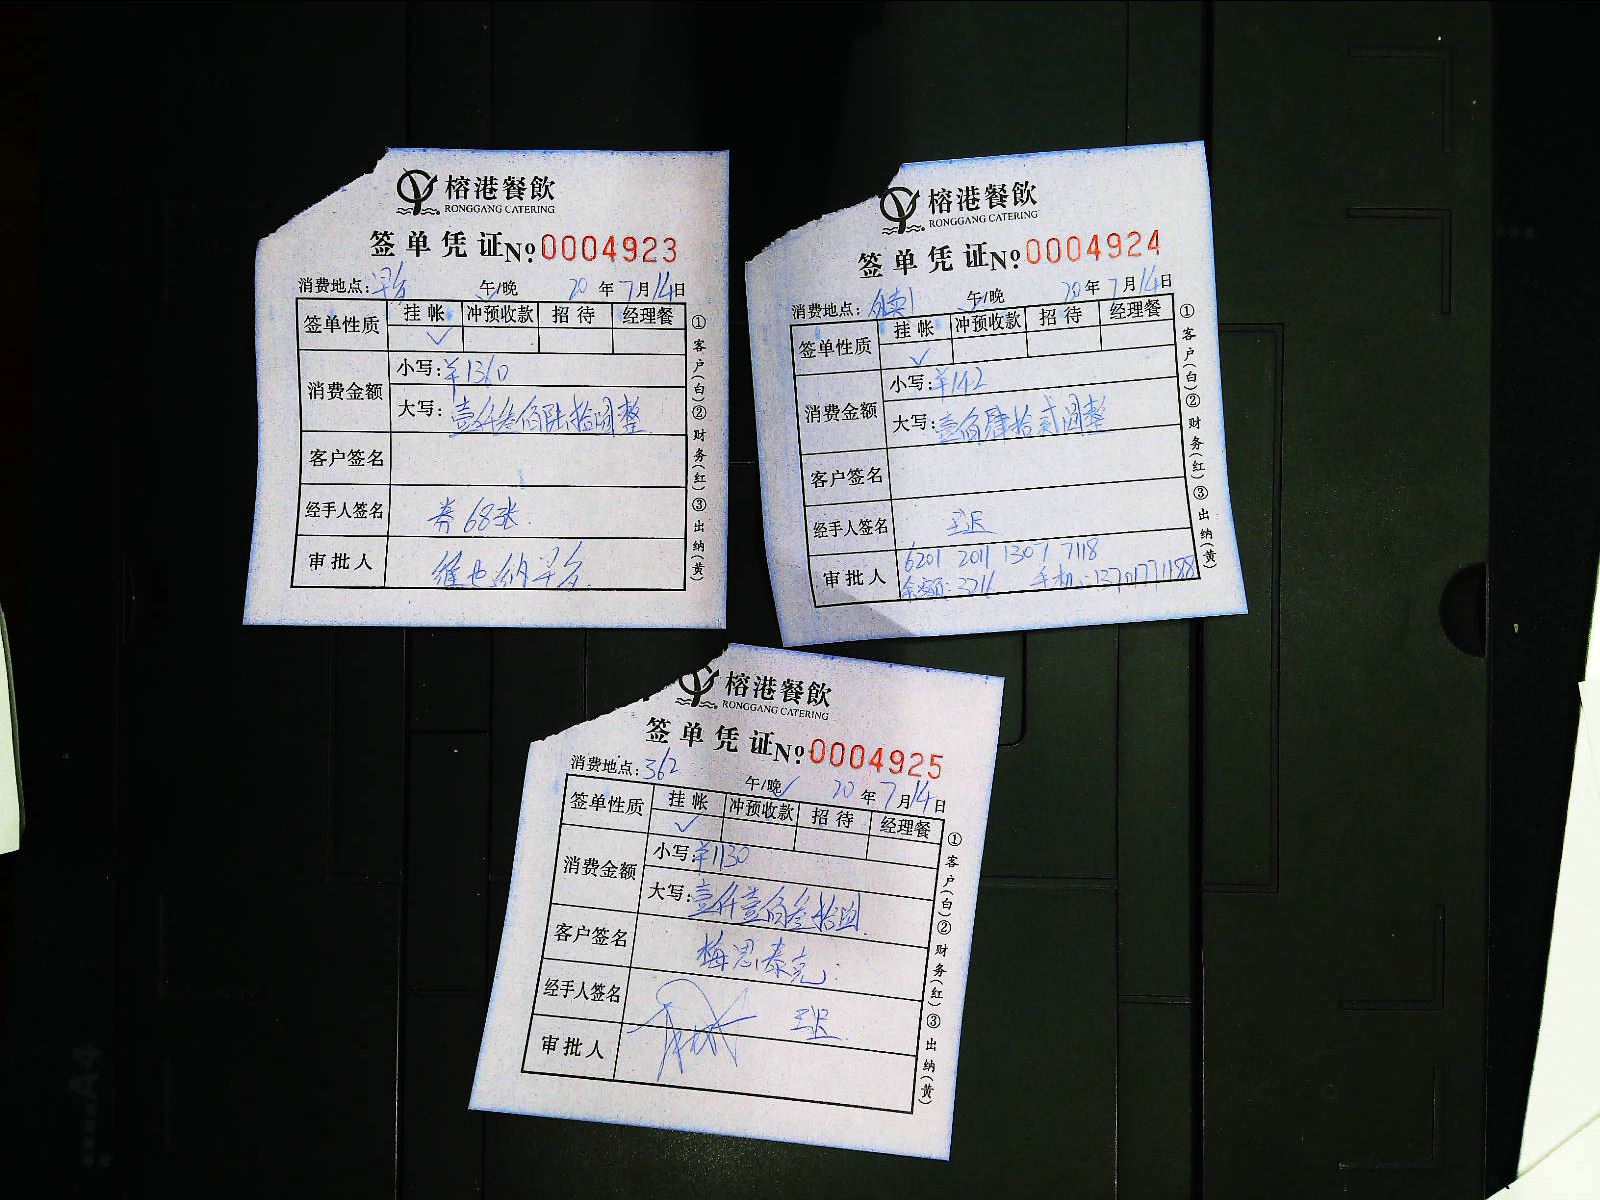 榕港餐飲
RONGGANG CATERING
签单凭证 No. 0004923
消费地点: 早 午/晚 20年7月14日
签单性质 挂帐 冲预收款 招待 经理餐
✓
消费金额 小写: ¥1360
大写: 壹仟叁佰陆拾圆整
客户签名
经手人签名 券68张.
审批人 维也纳早
①客户(白)②财务(红)③出纳(黄)
榕港餐飲
RONGGANG CATERING
签单凭证 No. 0004924
消费地点: 外卖1 午/晚 20年7月14日
签单性质 挂帐 冲预收款 招待 经理餐
✓
消费金额 小写: ¥142
大写: 壹佰肆拾贰圆整
客户签名
经手人签名
审批人 6201 2011 1301 7118
余额: 3211 手机: 13701771188
①客户(白)②财务(红)③出纳(黄)
榕港餐飲
RONGGANG CATERING
签单凭证 No. 0004925
消费地点: 362 午/晚✓ 20年7月14日
签单性质 挂帐 冲预收款 招待 经理餐
✓
消费金额 小写: ¥1130
大写: 壹仟壹佰叁拾圆.
客户签名 梅思泰克
经手人签名
审批人
①客户(白)②财务(红)③出纳(黄)
A4